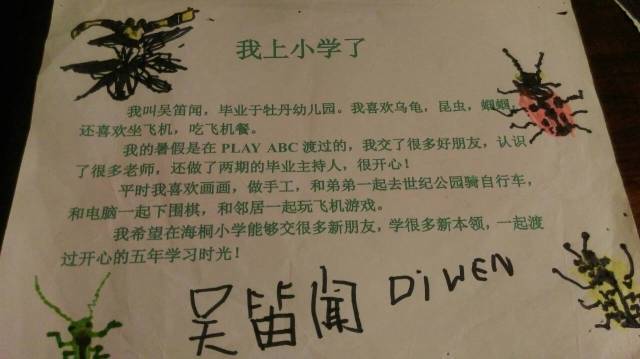 我上小学了
我叫吴笛闻，毕业于牡丹幼儿园。我喜欢乌龟，昆虫，蝈蝈，
还喜欢坐飞机，吃飞机餐。
我的暑假是在 PLAY ABC 渡过的，我交了很多好朋友，认识
了很多老师，还做了两期的毕业主持人，很开心！
平时我喜欢画画，做手工，和弟弟一起去世纪公园骑自行车，
和电脑一起下围棋，和邻居一起玩飞机游戏。
我希望在海桐小学能够交很多新朋友，学很多新本领，一起渡
过开心的五年学习时光！
吴笛闻 DiWEN